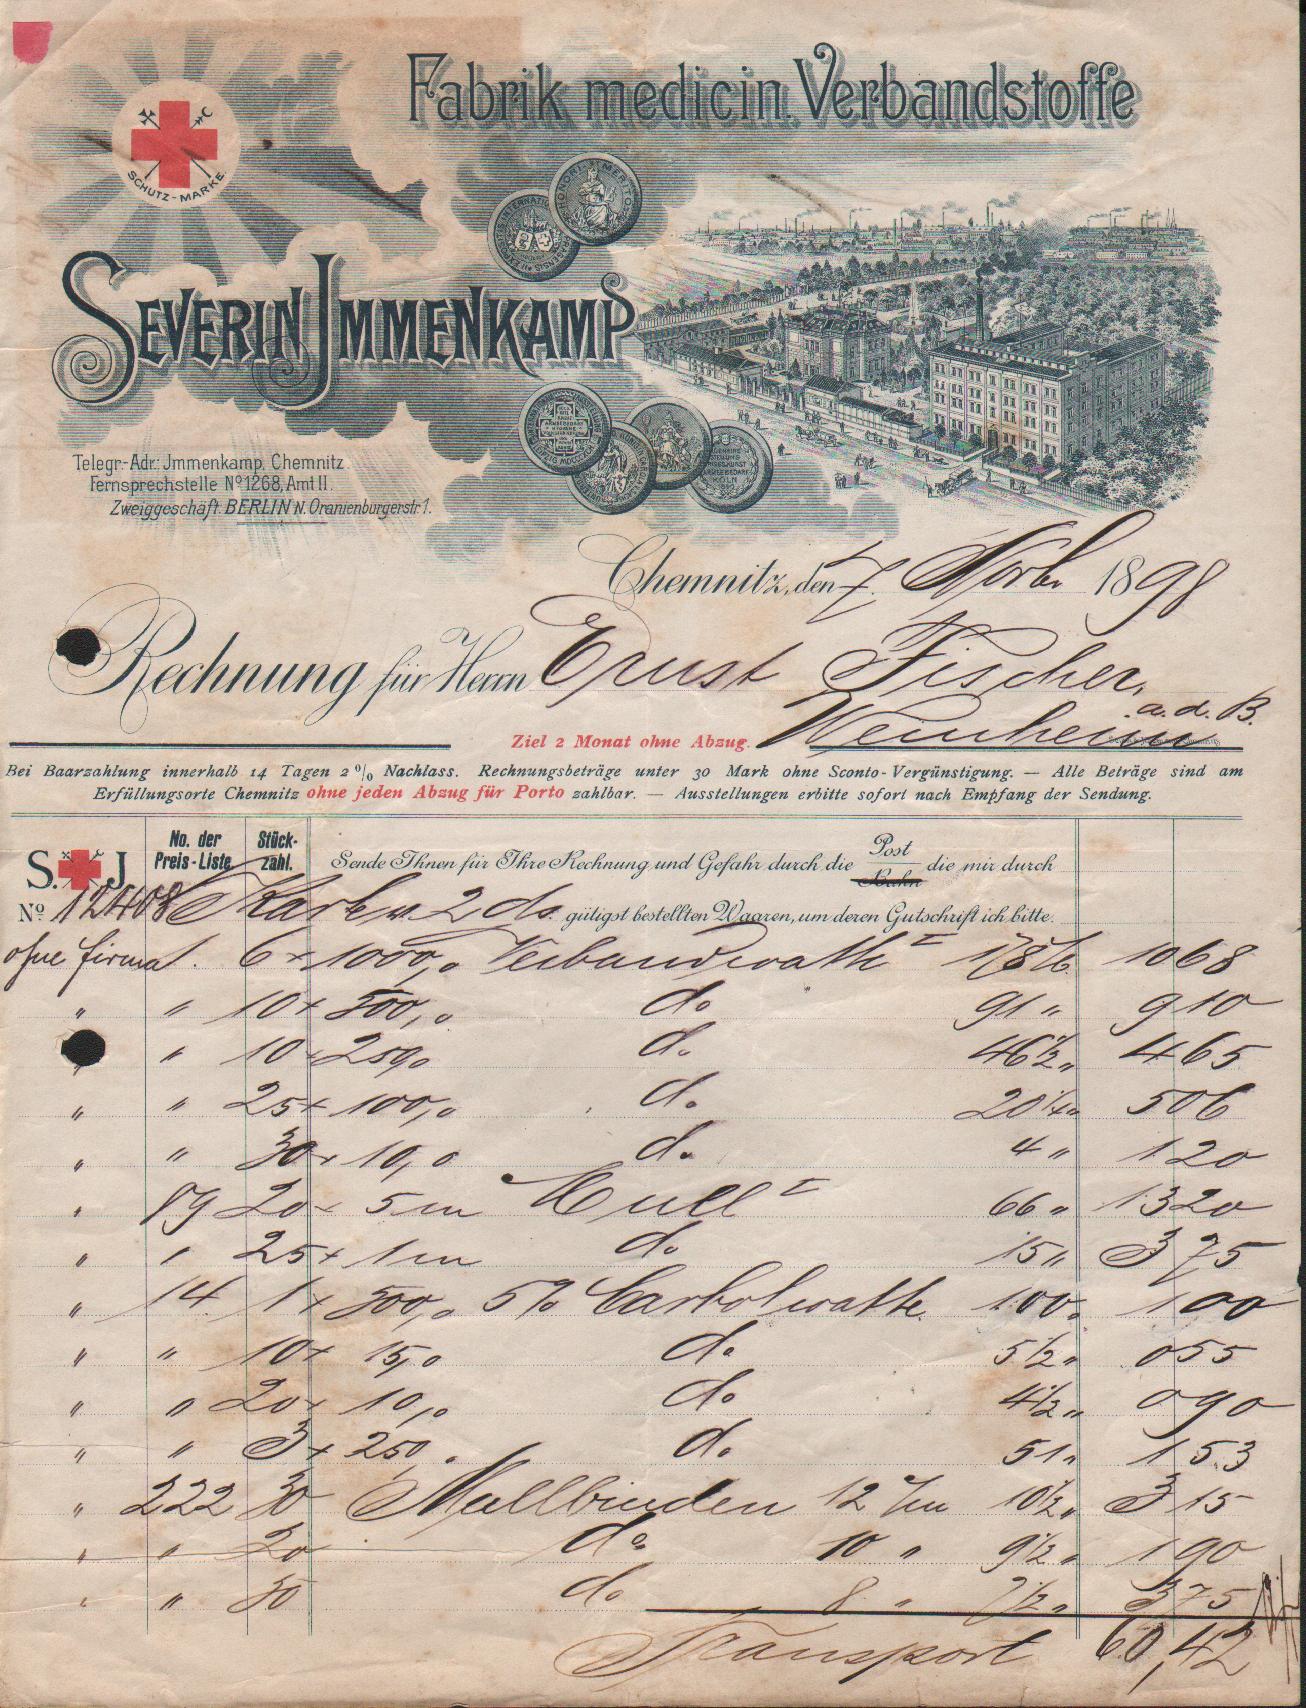 Fabrik medicin. Verbandstoffe
SCHUTZ-MARKE.
SEVERIN JMMENKAMP
Telegr.-Adr.: Jmmenkamp, Chemnitz.
Fernsprechstelle No 1268, Amt II.
Zweiggeschäft BERLIN N. Oranienburgerstr. 1.
Chemnitz, den 7. Novbr 1898
Rechnung für Herrn Ernst Fischer,
Weinheim a. d. B.
Ziel 2 Monat ohne Abzug.
Bei Baarzahlung innerhalb 14 Tagen 2% Nachlass. Rechnungsbeträge unter 30 Mark ohne Sconto-Vergünstigung. — Alle Beträge sind am
Erfüllungsorte Chemnitz ohne jeden Abzug für Porto zahlbar. — Ausstellungen erbitte sofort nach Empfang der Sendung.
S. J. No. der Preis-Liste Stück-zahl. Sende Ihnen für Ihre Rechnung und Gefahr durch die Post Bahn die mir durch
No 12408 Karte v. 2 ds. gütigst bestellten Waaren, um deren Gutschrift ich bitte.
ohne Firma 1. 6 x 1000,0 Verbandwatte I 178 10 68
" " 10 x 500,0 do 91 " 9 10
" 10 x 250,0 do 46 1/2 " 4 65
" " 25 x 100,0 do 20 1/4 " 5 06
" " 30 x 10,0 do 4 " 1 20
" 89 20 x 5 m Mull I 66 " 13 20
" " 25 x 1 m do 15 " 3 75
" 14 1 x 500,0 5% Carbolwatte 100 " 1 00
" " 10 x 15,0 do 5 1/2 " 0 55
" " 20 x 10,0 do 4 1/2 " 0 90
" " 3 x 250, do 51 " 1 53
" 222 30 Mullbinden 12 c/m 10 1/2 " 3 15
" " 20 do 10 " 9 1/2 " 1 90
" " 50 do 8 " 7 1/2 " 3 75
Transport 60,42